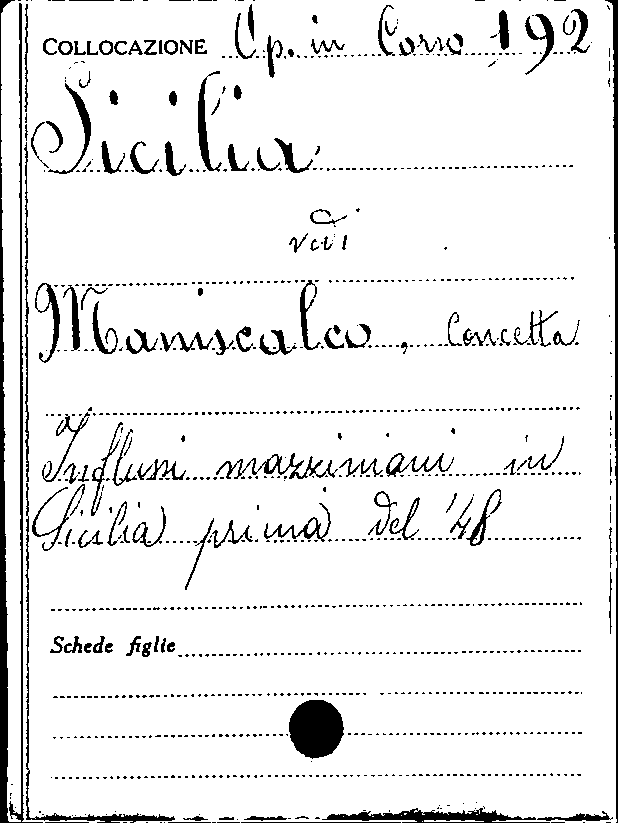 COLLOCAZIONE Op. in Corso 192
Sicilia
vedi
Maniscalco, Concetta
Influssi mazziniani in
Sicilia prima del '48
Schede figlie